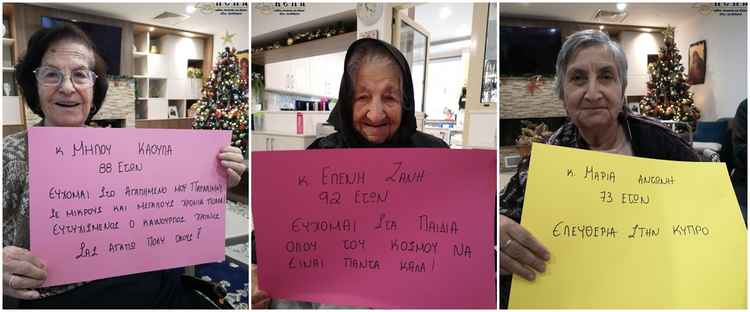 κ. ΜΗΛΟΥ ΚΑΟΥΛΑ
88 ΕΤΩΝ
ΕΥΧΟΜΑΙ ΣΤΟ ΑΓΑΠΗΜΕΝΟ ΜΟΥ ΠΑΡΑΛΙΜΝΙ
ΣΕ ΜΙΚΡΟΥΣ ΚΑΙ ΜΕΓΑΛΟΥΣ ΧΡΟΝΙΑ ΠΟΛΛΑ
ΕΥΤΥΧΙΣΜΕΝΟΣ Ο ΚΑΙΝΟΥΡΓΙΟΣ ΧΡΟΝΟΣ
ΣΑΣ ΑΓΑΠΩ ΠΟΛΥ ΟΛΟΥΣ!
κ. ΕΛΕΝΗ ΖΑΝΗ
92 ΕΤΩΝ
ΕΥΧΟΜΑΙ ΣΤΑ ΠΑΙΔΙΑ
ΟΛΟΥ ΤΟΥ ΚΟΣΜΟΥ ΝΑ
ΕΙΝΑΙ ΠΑΝΤΑ ΚΑΛΑ!
κ. ΜΑΡΙΑ ΑΝΤΩΝΗ
73 ΕΤΩΝ
ΕΛΕΥΘΕΡΙΑ ΣΤΗΝ ΚΥΠΡΟ